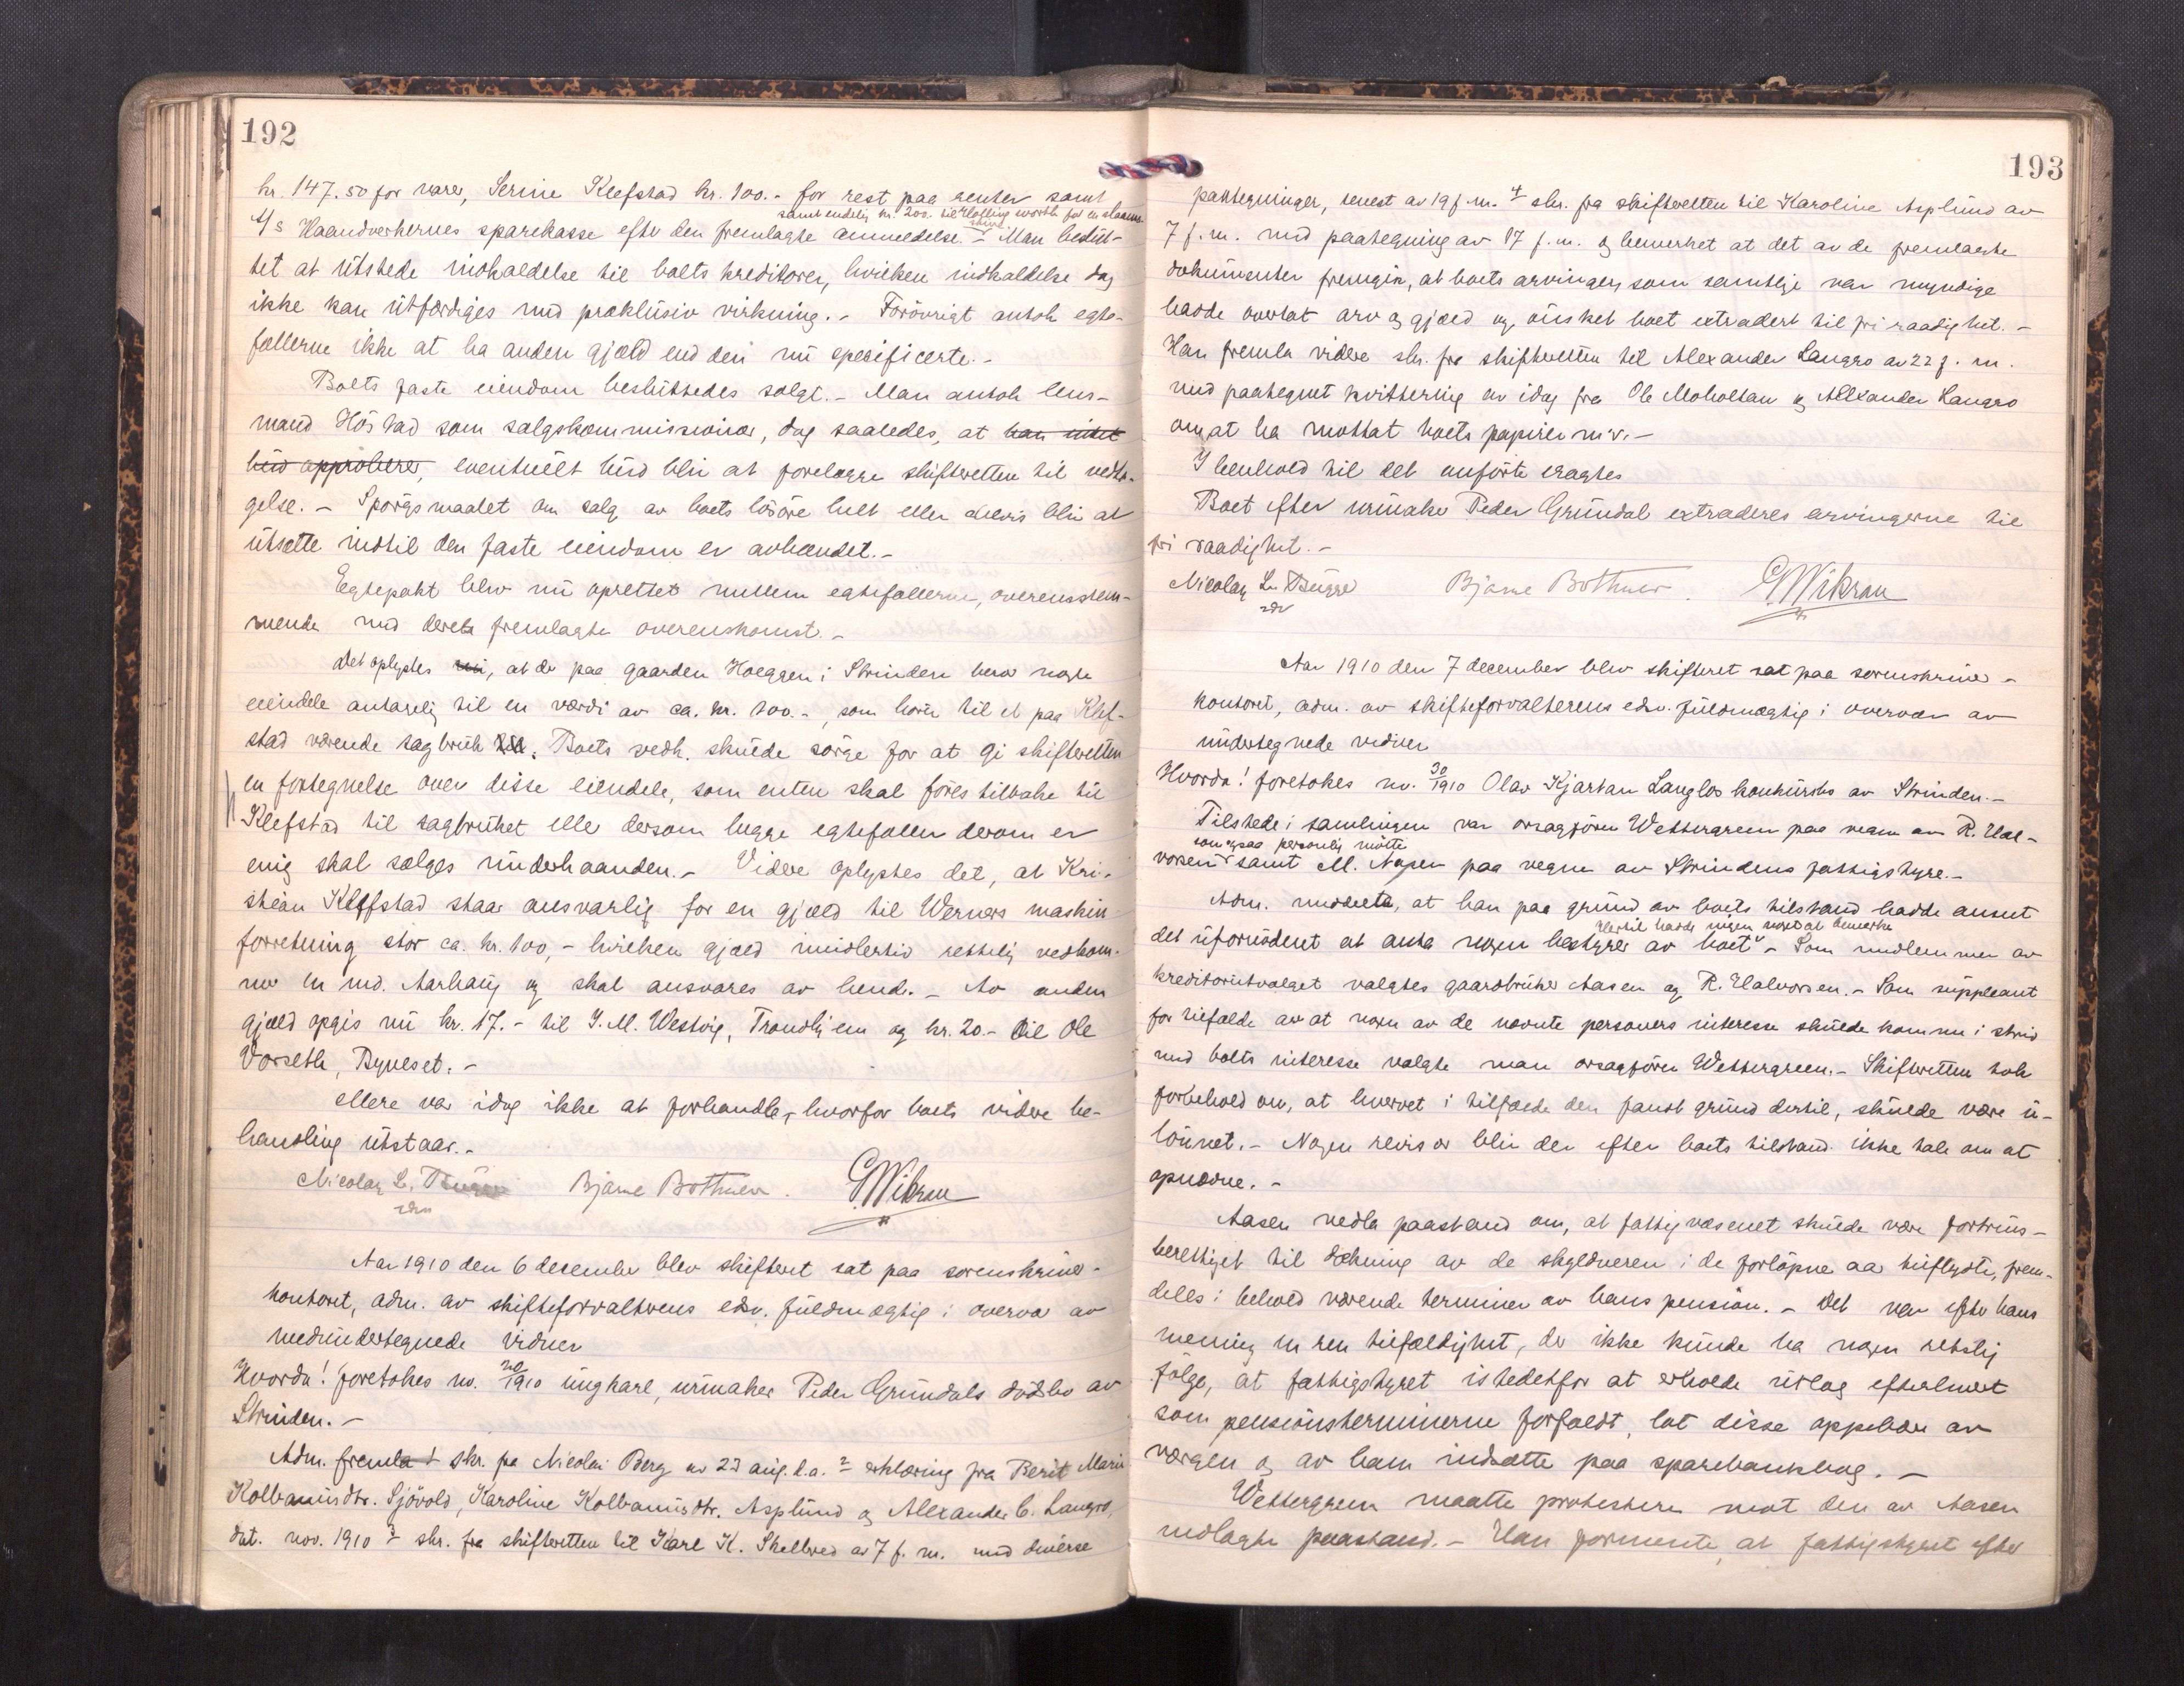 192
kr. 147.50 for varer, Serine Klefstad kr. 100.- for rest paa renter samt
samt endelig kr. 200. til
A/s Haandverkernes sparekasse efter den fremlagte anmeldelse. - Man beslut-
tet at utstede indkaldelse til boets kreditorer, hvilken indkaldelse dog
ikke kan utfærdiges med proklusiv virkning. - Forøvrigt antok egte-
fællerne ikke at ha anden gjæld end den nu spesificerte. -
Boets faste eiendom besluttedes solgt. - Man antok lens-
mand Høstad som salgskommissionær, dog saaledes, at han intet
bud approberer, eventuelt bud blir at forelægge skifteretten til vedta-
gelse. - Spørgsmaalet om salg av boets løsøre helt eller delvis blir at
utsætte indtil den faste eiendom er avhændet. -
Egtepakt blev nu oprettet mellem egtefællerne, overensstem-
mende med deres fremlagte overenskomst. -
Det oplystes nu, at der paa gaarden Hoeggen i Strinden bero nogle
eiendele antagelig til en værdi av ca. kr. 100. -, som hører til et paa Klef-
stad værende sagbruk. Boets vedk. skulde sørge for at gi skifteretten
en fortegnelse over disse eiendele, som enten skal føres tilbake til
Klefstad til sagbruket eller dersom begge egtefæller derom er
enig skal sælges underhaanden. - Videre oplystes det, at Kri-
stian Klefstad staar ansvarlig for en gjæld til Werners maskin
forretning stor ca. kr. 100, - hvilken gjæld imidlertid rettelig vedkom-
mer en md. Aarhaug og skal ansvares av hende. - Av anden
gjæld opgis nu kr. 17. - til J. M. Westvig, Trondhjem og kr. 20. - til Ole
Vorseth, Byneset. -
ellers var idag ikke at forhandle, hvorfor boets videre be-
handling utstaar. -
Nicolay L. Bugge Bjarne Bothner. G Wikran
Aar 1910 den 6 december blev skifteret sat paa sorenskriver-
kontoret, adm. av skifteforvalterens edsv. fuldmægtig i overvær av
medundertegnede vidner
Hvorda! foretokes no. 20/1910 ungkarl, urmaker Peder Grundals dødsbo av
Strinden. -
Adm. fremla 1 skr. fra Nicolai Berg av 23 aug. d.a. 2 erklæring fra Berit Marie
Kolbanusdtr. Sjøvold, Karoline Kolbanusdtr. Asplund og Alexander C. Langro,
dat. nov. 1910 3 skr. fra skifteretten til Karl K. Skelbred av 7 f. m. med diverse
193
paategninger, senest av 19 f. m. 4 skr. fra skifteretten til Karoline Asplund av
7 f. m. med paategning av 17 f. m. og bemerket at det av de fremlagte
dokumenter fremgik, at boets arvinger, som samtlige var myndige
hadde overtat arv og gjæld og ønsket boet extradert til fri raadighet. -
Han fremla videre skr. fra skifteretten til Alexander Langro av 22 f. m.
med paategnet kvittering av idag fra Ole Moholtan og Alexander Langro
om at ha mottat boets papirer m.v. -
I henhold til det anførte eragtes
Boet efter urmaker Peder Grundal extraderes arvingerne til
fri raadighet. -
Nicolay L. Bugge Bjarne Bothner. G Wikran
Aar 1910 den 7 december blev skifteret sat paa sorenskriver-
kontoret, adm. av skifteforvalterens edsv. fuldmægtig i overvær av
undertegnede vidner
Hvorda! foretokes no. 30/1910 Olav Kjartan Langlos konkursbo av Strinden. -
Tilstede i samlingen var orsagfører Wettergreen paa vegne av R. Hal-
som ogsaa personlig møtte
vorsen samt M. Aasen paa vegne av Strindens fattigstyre. -
Adm. meddelte, at han paa grund av boets tilstand hadde anseet
Hertil hadde ingen noget at bemerke
det ufornødent at anta nogen bestyrer av boet - Som medlemmer av
kreditorutvalget valgtes gaardbruker Aasen og R. Halvorsen. - Som suppleant
for tilfælde av at nogen av de nævnte personers interesse skulde komme i strid
med boets interesse valgte man orsagfører Wettergreen. - Skifteretten tok
forbehold om, at hvervet i tilfælde den fandt grund dertil, skulde være u-
lønnet. - Nogen revisor blir der efter boets tilstand ikke tale om at
opnævne. -
Aasen nedla paastand om, at fattigvæsenet skulde være fortrins-
berettiget til dækning av de skyldneren i de forløpne aar tilflydte, frem-
deles i behold værende terminer av hans pension. - Det var efter hans
mening en ren tilfældighet, der ikke kunde ha nogen retslig
følge, at fattigstyret istedetfor at erholde utlæg efterhvert
som pensionsterminerne forfaldt, lot disse oppebære av
vergen og av ham indsætte paa sparebankbog. -
Wettergreen maatte protestere mot den av Aasen
nedlagte paastand. - Han formente, at fattigstyret efter